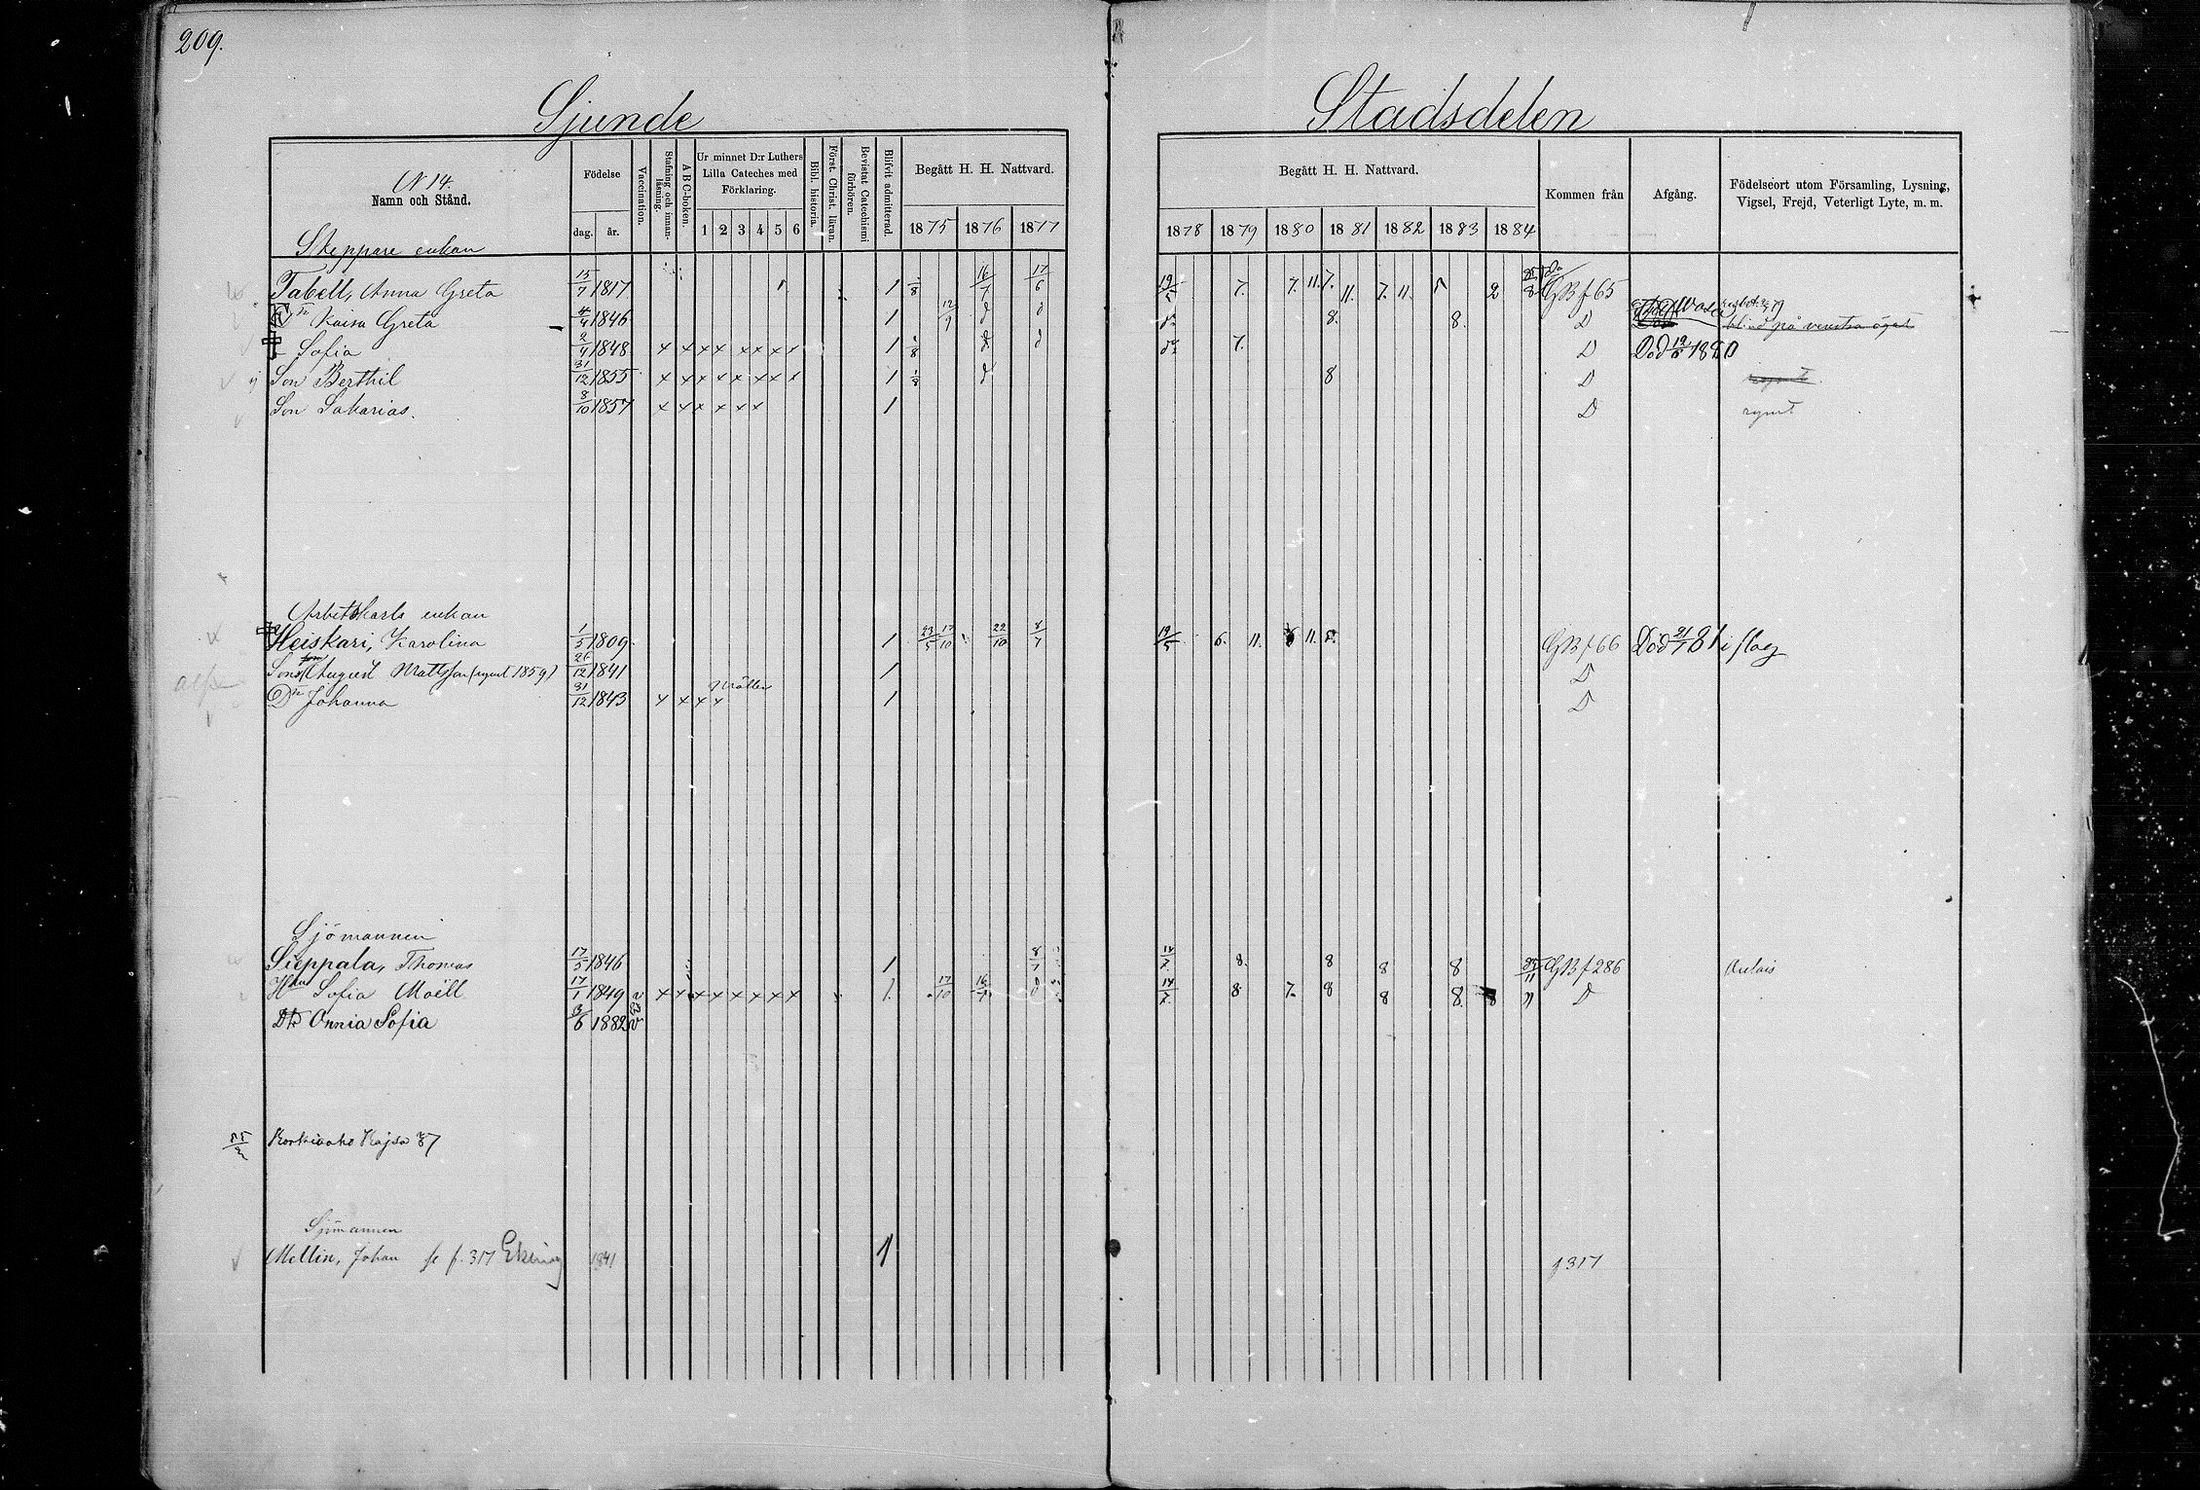 209.
Sjunde Stadsdelen
N 14.
Namn och Stånd.
Födelse
dag. år.
Vaccination.
Stafning och innanläsning.
A B C-boken.
Ur minnet D:r Luthers Lilla Cateches med Förklaring.
1 2 3 4 5 6
Bibl. historia.
Först. Christ. läran.
Bevistat Catechismi förhören.
Blifvit admitterad.
Begått H. H. Nattvard.
1875 1876 1877
Begått H. H. Nattvard.
1878 1879 1880 1881 1882 1883 1884
Kommen från
Afgång.
Födelseort utom Församling, Lysning, Vigsel, Frejd, Veterligt Lyte, m. m.
Skeppare enkan
Tabell, Anna Greta 15/7 1817 1 1/8 16/7 17/6 19/5 7. 7. 11. 7. 11. 7. 11. 2 25/8 GB f 65
Kaisa Greta 4/4 1846 1 12/9 d d 8. 8. D blind på venstra ögat
Sofia 2/4 1848 x x x x x x x x 1 1/8 d d 7. D Död 12/6 1880
Son Berthil 31/12 1855 x x x x x x x x 1 1/8 d 8 D
Son Sakarias. 8/10 1857 x x x x x x 1 D rymt
Arbetskarls enkan
Heiskari, Karolina 1/5 1809 1 23/5 17/10 22/10 8/7 19/5 6. 11. 11. GB f 66 Död 21/7 81 i slag
August Mattsson (rymt 1859) 26/12 1841 1 D
Dr Johanna 31/12 1843 x x x x 1 D
Sjömannen
Sieppala, Thomas 17/5 1846 1 8/7 14/7 8. 8 8 8 25/11 GB f 286
Hu Sofia Moëll 17/1 1849 x x x x x x x x 1. 17/10 16/7 d 14/7 8 7. 8 8 8. 8 D
Dtr Onnia Sofia 3/6 1882
Korkiaaho Kajsa 87
Sjömannen
Mellin, Johan se f. 317 1841 1 f 317